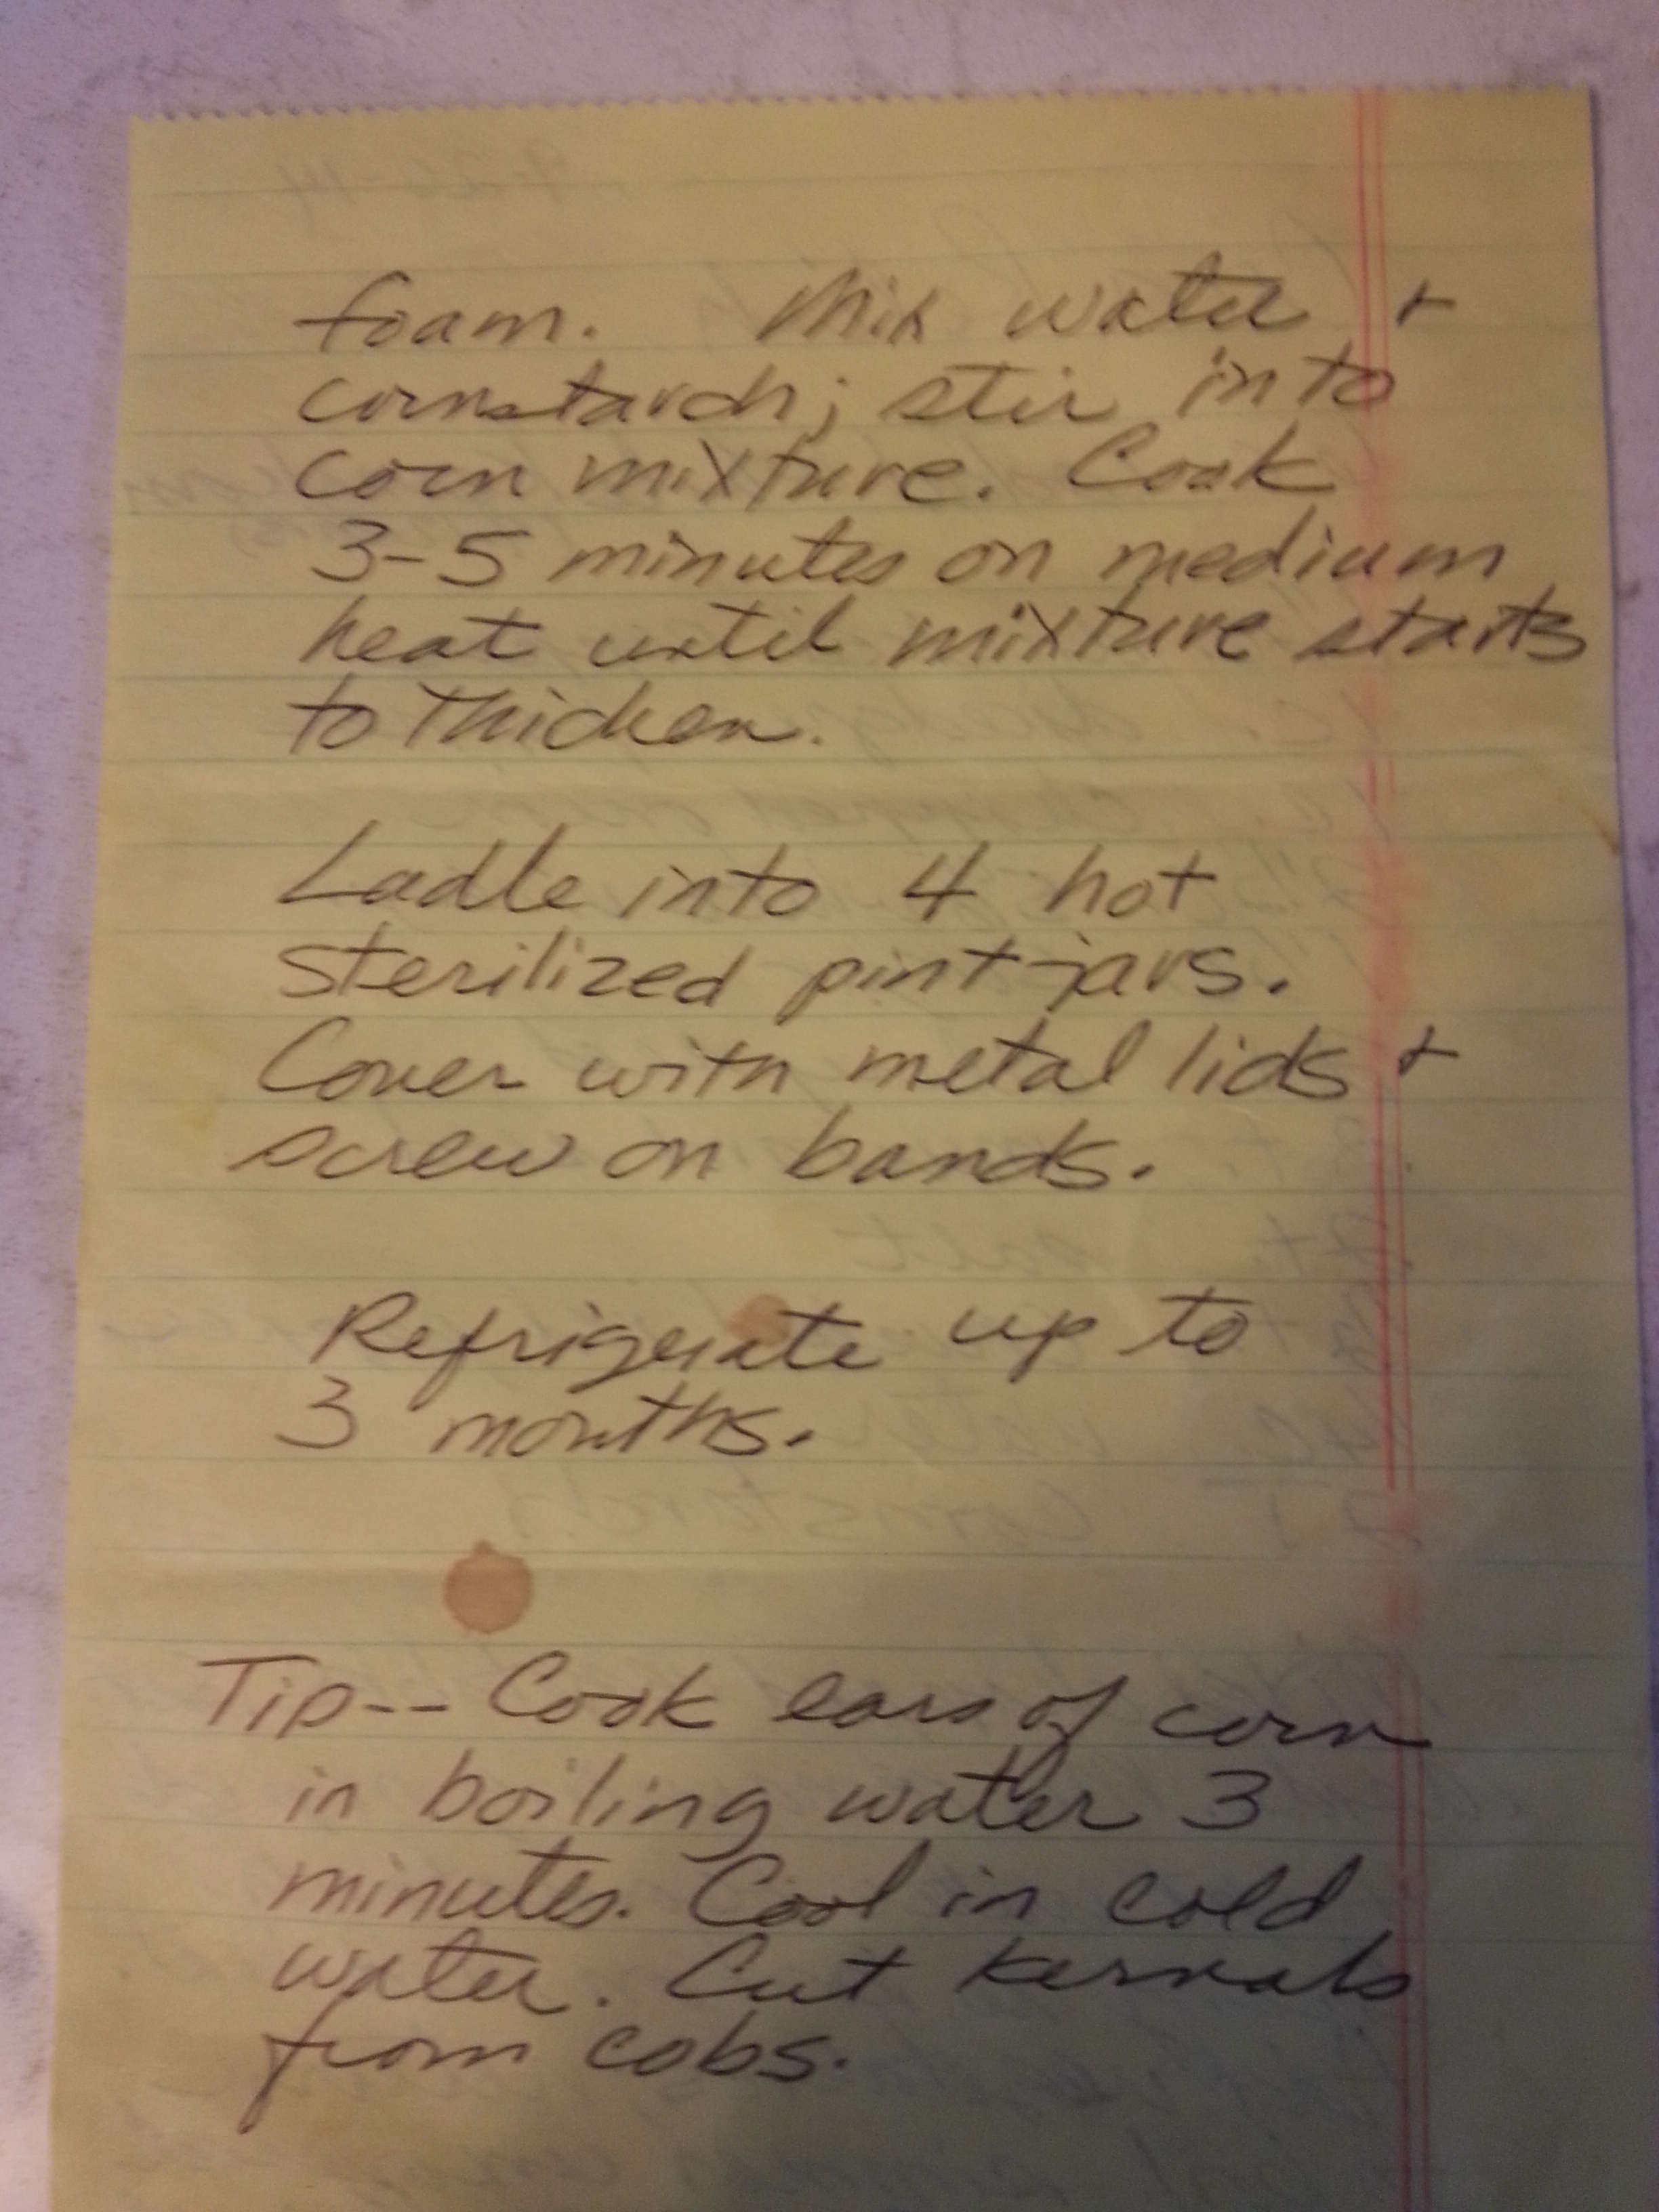 foam. Mix water +
cornstarch; stir into
corn mixture. Cook
3-5 minutes on medium
heat until mixture starts
to thicken.
Ladle into 4 hot
sterilized pint jars.
Cover with metal lids +
screw on bands.
Refrigerate up to
3 months.
Tip-- Cook ears of corn
in boiling water 3
minutes. Cool in cold
water. Cut kernals
from cobs.